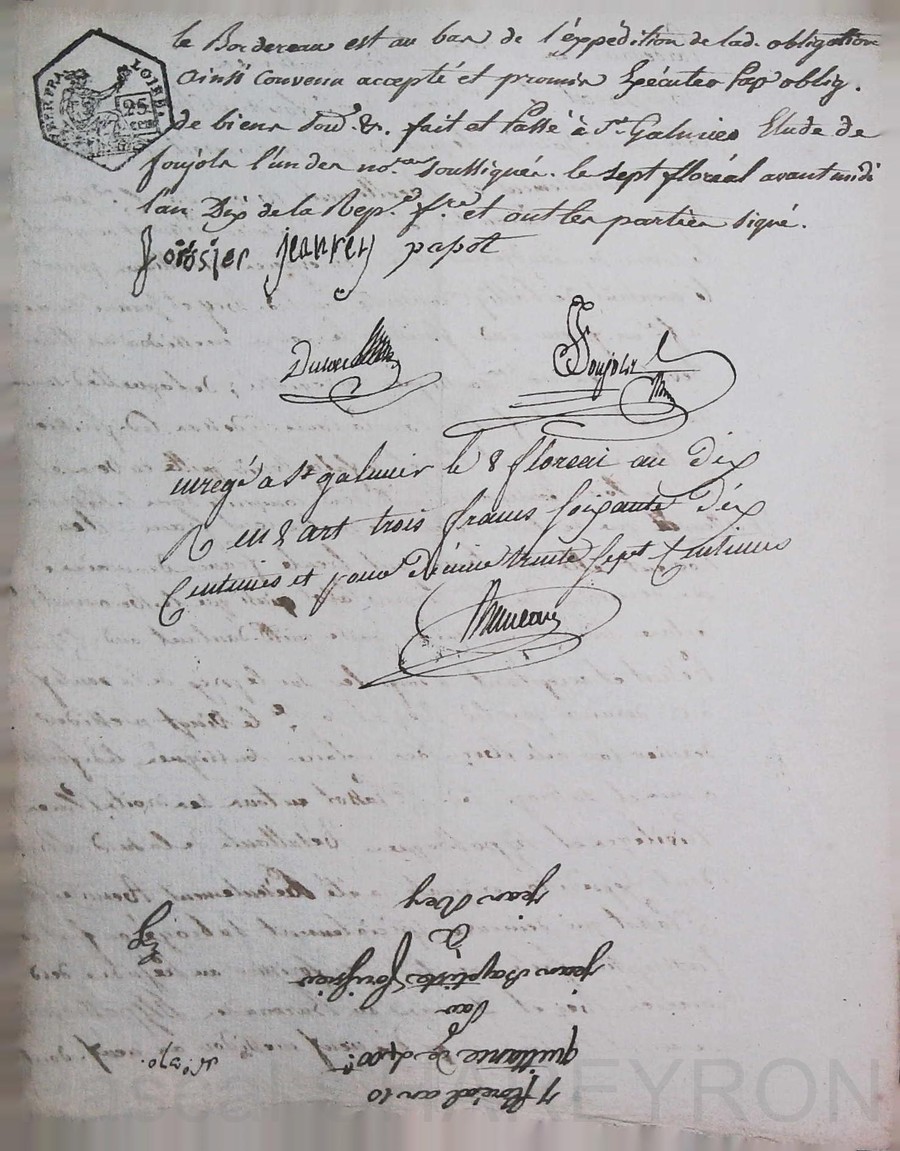 le Bordereau est au bas de l'éxpédition de lad. obligation
ainsi convenu accepté et promis Exécuter Par oblig.
de biens Soud. &. fait et Passé à St Galmier Etude de
Soujols l'un des nores soussignés. le sept floréal avant midi
l'an Dix de la Rep.e fre et ont les parties signé.
foissier jeanrey papot
Soujols
enregé a St galmier le 8 floreal an dix
R en 8 art trois francs soixante dix
Centimes et pour décime trente sept Centimes
7 floréal an 10
quittance de 400"
Par
jean Baptiste foissier
à
jean Rey
N.o 370.
LOIRE.
25